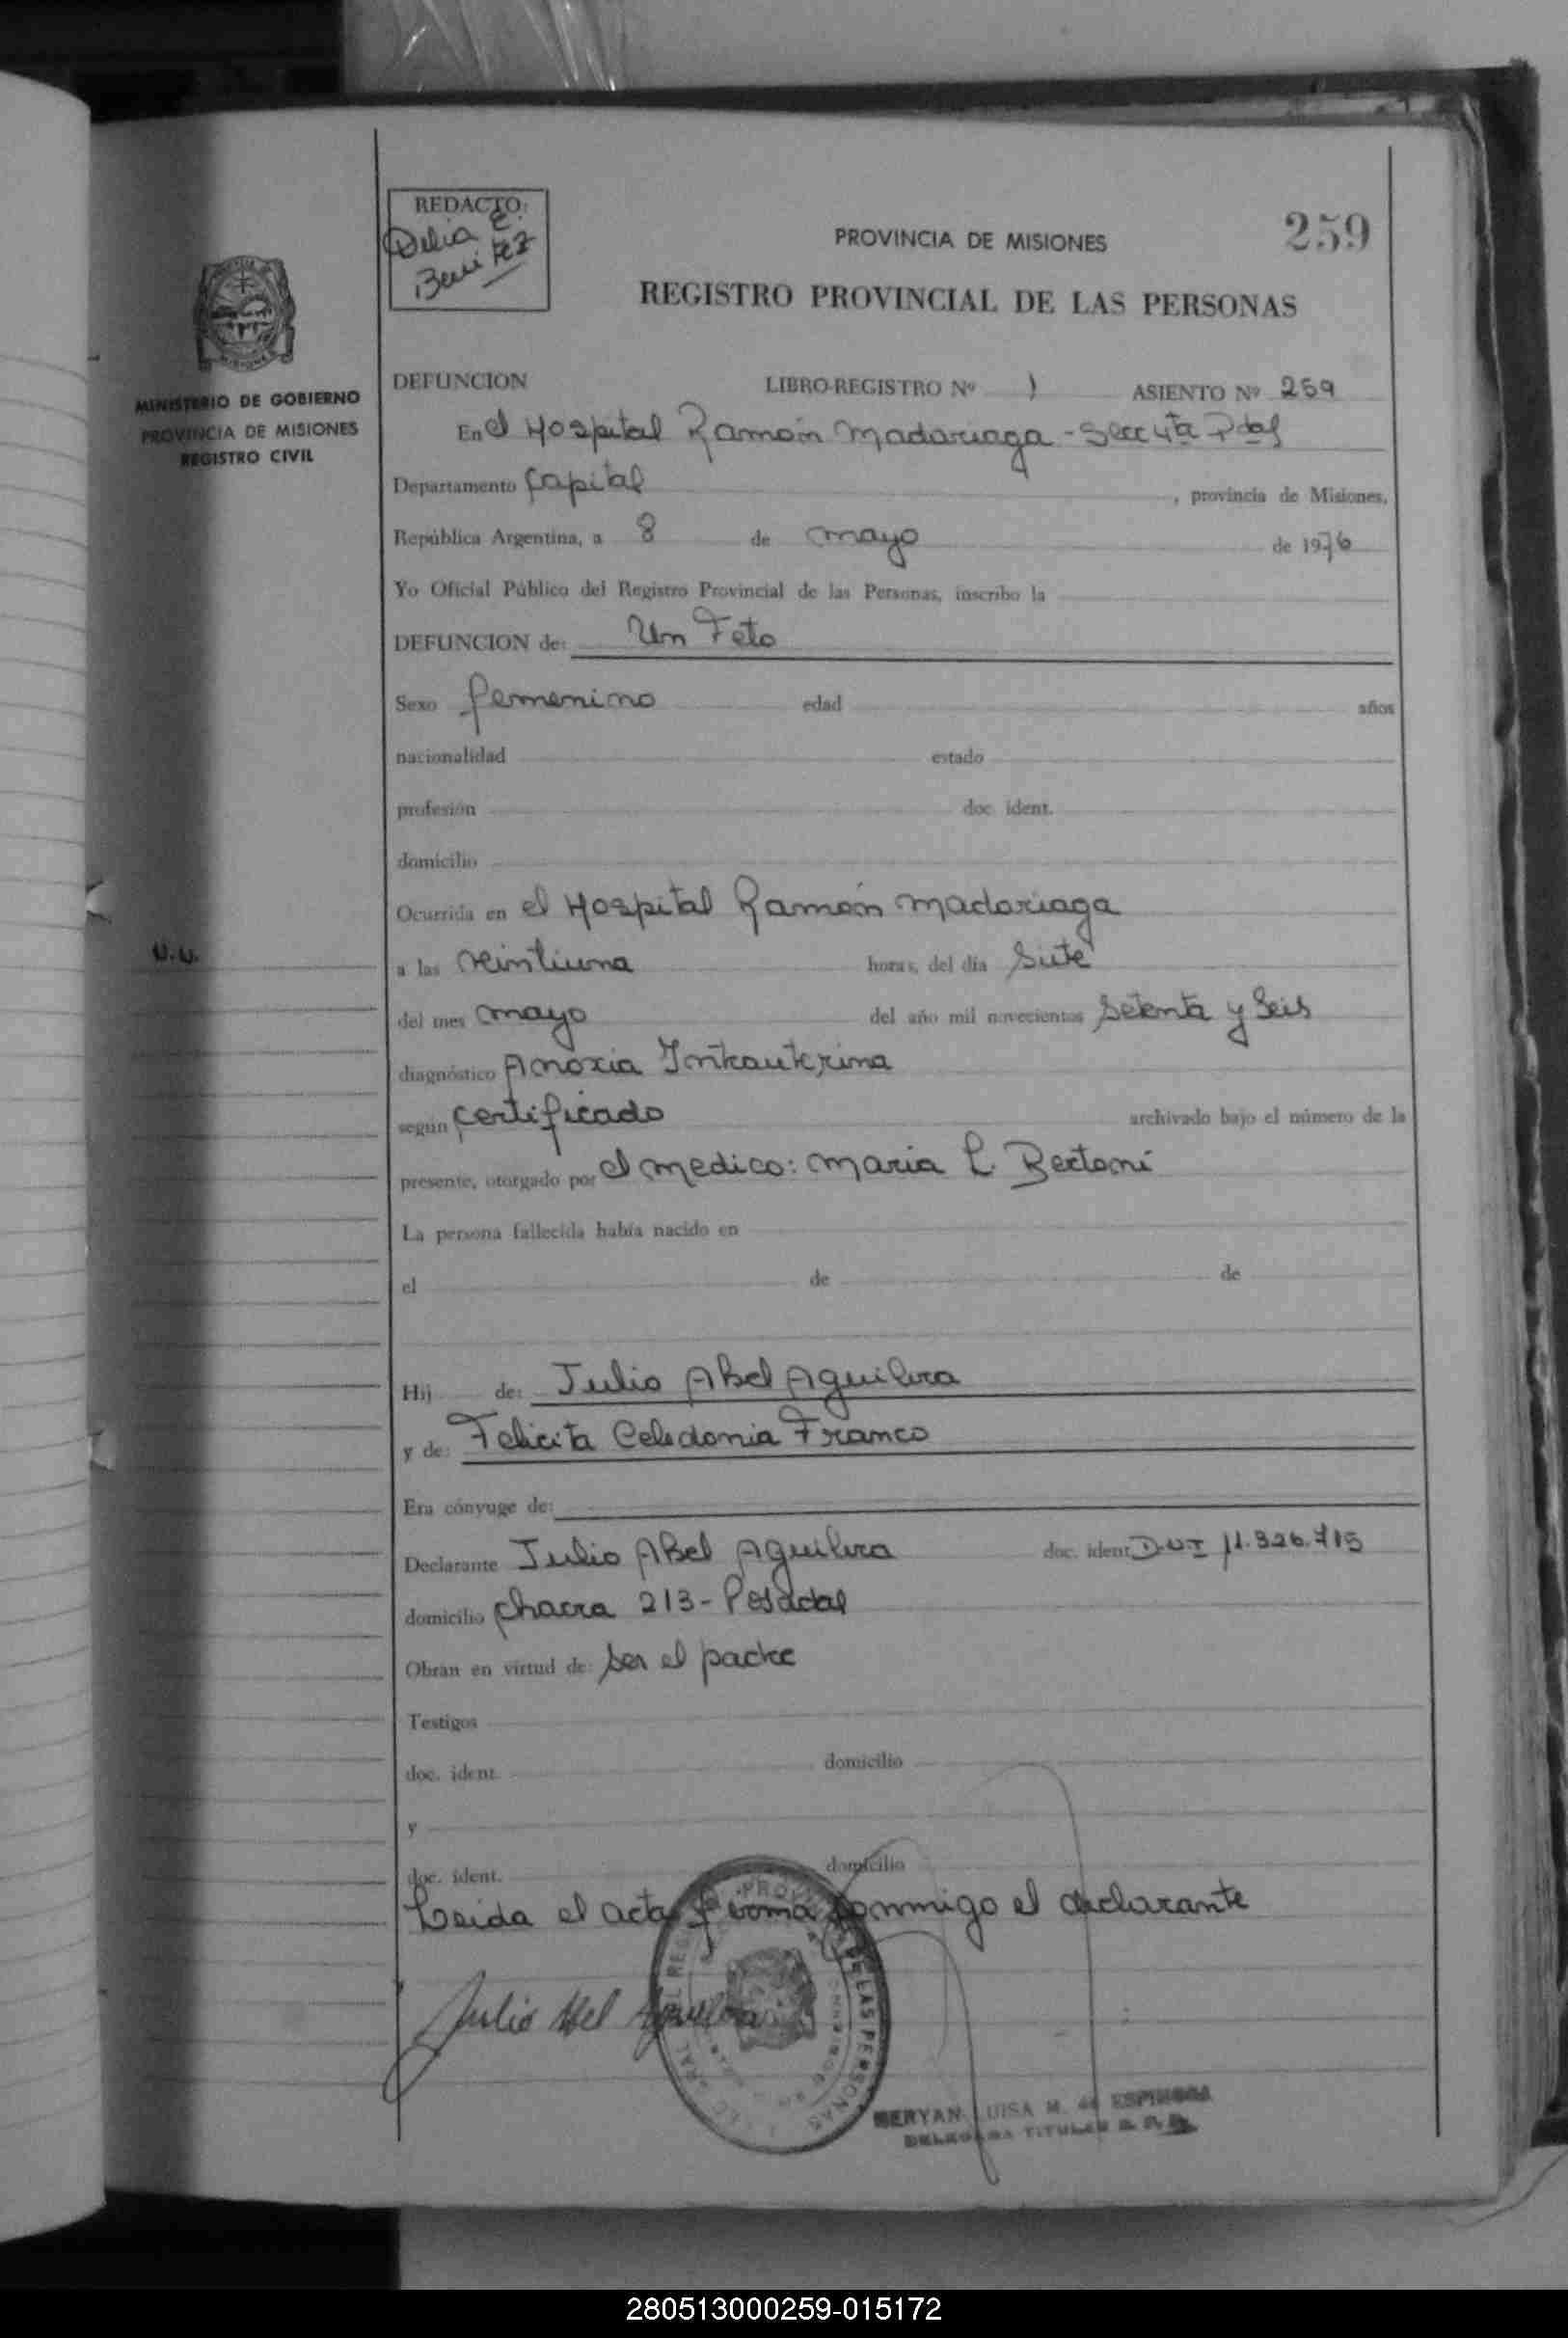 259
REDACTO:
Delia E.
Benitez
PROVINCIA DE MISIONES
REGISTRO PROVINCIAL DE LAS PERSONAS
MINISTERIO DE GOBIERNO
PROVINCIA DE MISIONES
REGISTRO CIVIL
DEFUNCION LIBRO-REGISTRO Nº 1 ASIENTO Nº 259
En el Hospital Ramón Madariaga - Secc 4ta Pdas
Departamento Capital, provincia de Misiones,
República Argentina, a 8 de mayo de 1976
Yo Oficial Público del Registro Provincial de las Personas, inscribo la
DEFUNCION de: Un Feto
Sexo femenino edad años
nacionalidad estado
profesión doc. ident.
domicilio
Ocurrida en el Hospital Ramón Madariaga
a las veintiuna horas, del día siete
del mes mayo del año mil novecientos setenta y seis
diagnóstico Anoxia Intrauterina
según certificado archivado bajo el número de la
presente, otorgado por el medico: Maria L. Bertoni
La persona fallecida había nacido en
el de de
Hij de: Julio Abel Aguilera
y de: Felicita Celedonia Franco
Era cónyuge de:
Declarante Julio Abel Aguilera doc. ident. D.N.I 11.326.715
domicilio Chacra 213 - Posadas
Obran en virtud de: ser el padre
Testigos
doc. ident. domicilio
y
doc. ident. domicilio
Leida el acta firma conmigo el declarante
Julio Abel Aguilera
LUISA M. de ESPINOSA
DELEGADA TITULAR
280513000259-015172